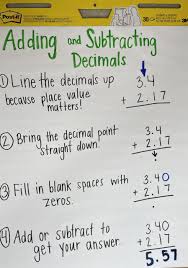 Post-it
Adding and Subtracting
Decimals
① Line the decimals up
because place value
matters!
3.4
+ 2.17
② Bring the decimal point
straight down.
3.4
+ 2.17
.
③ Fill in blank spaces with
zeros.
3.40
+ 2.17
④ Add or subtract to
get your answer.
3.40
+ 2.17
5.57